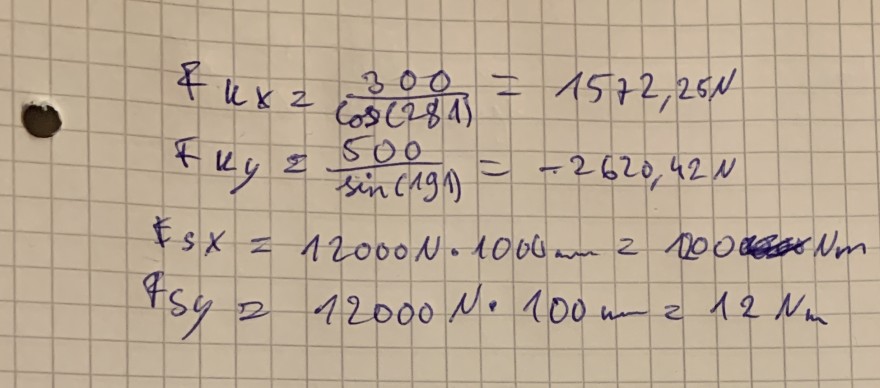 F kx = 300 / cos(281) = 1572,25N
F ky = 500 / sin(191) = -2620,42N
Fsx = 12000N · 1000mm = 1200 Nm
Fsy = 12000 N · 100 mm = 12 Nm